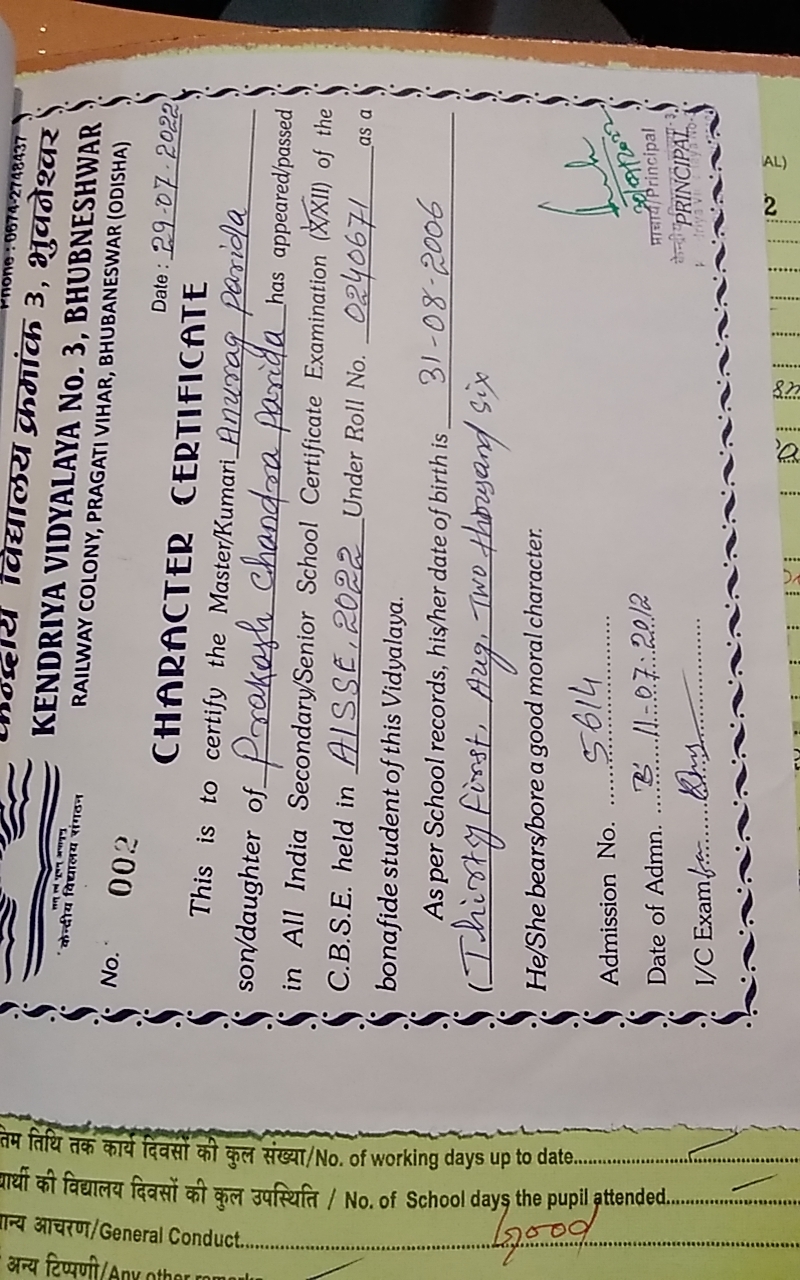 Phone : 0674-2748437
केन्द्रीय विद्यालय क्रमांक 3, भुवनेश्वर
KENDRIYA VIDYALAYA No. 3, BHUBNESHWAR
RAILWAY COLONY, PRAGATI VIHAR, BHUBANESWAR (ODISHA)
केन्द्रीय विद्यालय संगठन
No. 002
Date : 29-07-2022
CHARACTER CERTIFICATE
This is to certify the Master/Kumari Anurag Parida
son/daughter of Prakash Chandra Parida has appeared/passed
in All India Secondary/Senior School Certificate Examination (X/XII) of the
C.B.S.E. held in AISSE, 2022 Under Roll No. 0240671 as a
bonafide student of this Vidyalaya.
As per School records, his/her date of birth is 31-08-2006
(Thirty First, Aug, Two thousand six
He/She bears/bore a good moral character.
Admission No. ..... 5614 .....
Date of Admn. ..... 11-07-2012
I/C Exam .....
प्राचार्य/Principal
PRINCIPAL
AL)
2
तिम तिथि तक कार्य दिवसों की कुल संख्या/No. of working days up to date.....
ार्थी की विद्यालय दिवसों की कुल उपस्थिति / No. of School days the pupil attended.....
ान्य आचरण/General Conduct..... Good
अन्य टिप्पणी/Any other